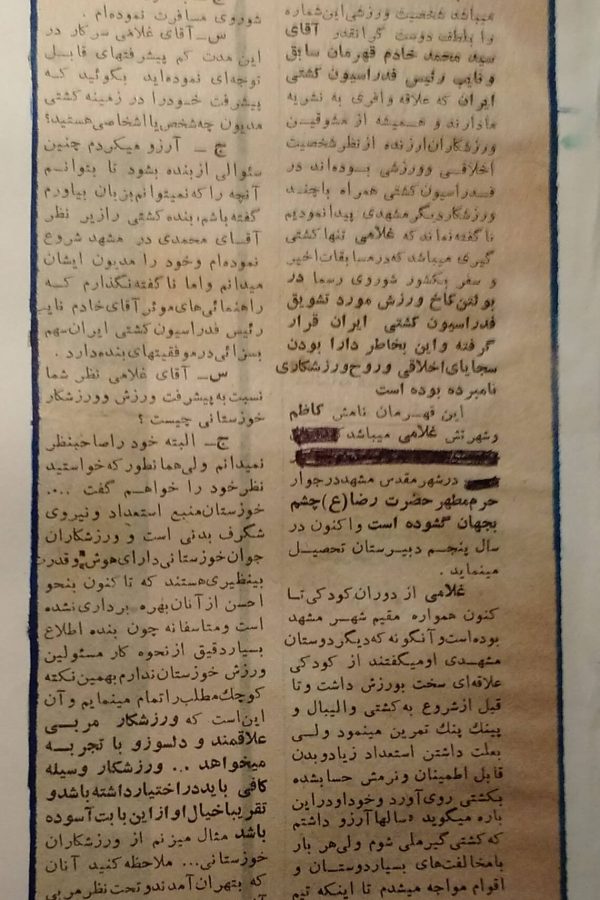 میباشد شخصیت ورزشی این شماره
را بلطف دوست گرانقدر آقای
سید محمد خادم قهرمان سابق
و نایب رئیس فدراسیون کشتی
ایران که علاقه وافری به نشریه
ما دارند و همیشه از مشوقین
ورزشکاران ارزنده از نظر شخصیت
اخلاقی و ورزشی بوده‌اند در
فدراسیون کشتی همراه با چند
ورزشکار دیگر مشهدی پیدا نمودیم
ناگفته نماند که غلامی تنها کشتی
گیری میباشد که در مسابقات اخیر
و سفر بکشور شوروی رسما در
بولتن کاخ ورزش مورد تشویق
فدراسیون کشتی ایران قرار
گرفته و این بخاطر دارا بودن
سجایای اخلاقی و روح ورزشکاری
نامبرده بوده است
این قهرمان نامش کاظم
و شهرتش غلامی میباشد
در شهر مقدس مشهد در جوار
حرم مطهر حضرت رضا (ع) چشم
بجهان گشوده است و اکنون در
سال پنجم دبیرستان تحصیل
مینماید .
غلامی از دوران کودکی تا
کنون همواره مقیم شهر مشهد
بوده است و آنگونه که دیگر دوستان
مشهدی او میگفتند از کودکی
علاقه‌ای سخت بورزش داشت و تا
قبل از شروع به کشتی والیبال و
پینك پنك تمرین مینمود ولی
بعلت داشتن استعداد زیاد و بدن
قابل اطمینان و نرمش حسابشده
بکشتی روی آورد و خود او در این
باره میگوید «سالها آرزو داشتم
که کشتی گیر ملی شوم ولی هر بار
با مخالفت‌های بسیار دوستان و
اقوام مواجه میشدم تا اینکه تیم
شوروی مسافرت نموده‌ام .
س- آقای غلامی سرکار در
این مدت کم پیشرفتهای قابل
توجه‌ای نموده‌اید بگوئید که
پیشرفت خود را در زمینه کشتی
مدیون چه شخص یا اشخاصی هستید؟
ج - آرزو میکردم چنین
سئوالی از بنده بشود تا بتوانم
آنچه را که نمیتوانم بزبان بیاورم
گفته باشم، بنده کشتی را زیر نظر
آقای محمدی در مشهد شروع
نموده‌ام و خود را مدیون ایشان
میدانم و اما ناگفته نگذارم که
راهنمائی‌های موثر آقای خادم نایب
رئیس فدراسیون کشتی ایران سهم
بسزائی در موفقیتهای بنده دارد .
س- آقای غلامی نظر شما
نسبت به پیشرفت ورزش و ورزشکار
خوزستانی چیست ؟
ج- البته خود را صاحبنظر
نمیدانم ولی همانطور که خواستید
نظر خود را خواهم گفت ....
خوزستان منبع استعداد و نیروی
شگرف بدنی است و ورزشکاران
جوان خوزستانی دارای هوش و قدرت
بینظیری هستند که تا کنون بنحو
احسن از آنان بهره برداری نشده
است و متاسفانه چون بنده اطلاع
بسیار دقیق از نحوه کار مسئولین
ورزش خوزستان ندارم بهمین نکته
کوچك مطلب را تمام مینمایم و آن
این است که ورزشکار مربی
علاقمند و دلسوز و با تجربه
میخواهد ... ورزشکار وسیله
کافی باید در اختیار داشته باشد و
تقریبا خیال او از این بابت آسوده
باشد مثال میزنم از ورزشکاران
خوزستانی... ملاحظه کنید آنان
که بتهران آمدند و تحت نظر مربی